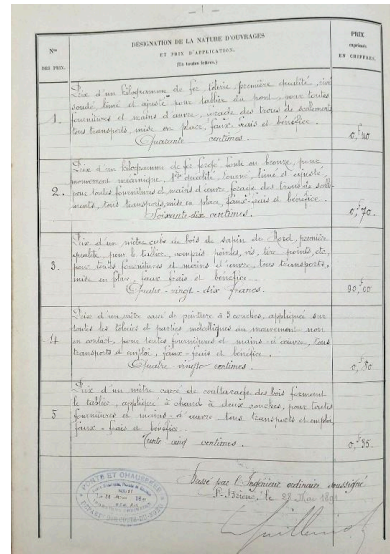 Nos
DES PRIX.
DÉSIGNATION DE LA NATURE D'OUVRAGES
ET PRIX D'APPLICATION.
(En toutes lettres.)
PRIX
exprimés
EN CHIFFRES.
1.
Prix d'un kilogramme de fer première qualité,
soudé, limé et ajusté pour tablier du pont, pour toutes
fournitures et mains d'œuvre, des trous de scellements
tous transports, mise en place, faux-frais et bénéfice.
Quarante centimes.
0,f40
2.
Prix d'un kilogramme de fer forgé, fonte ou bronze, pour
mouvement mécanique, 1re qualité, tourné, limé et ajusté
pour toutes fournitures et mains d'œuvre, des trous de scelle-
ments, tous transports, mise en place, faux-frais et bénéfice.
Soixante-dix centimes.
0,f70.
3.
Prix d'un mètre cube de bois de sapin du Nord, première
qualité, pour le tablier, compris pointes, vis, etc.
pour toutes fournitures et mains d'œuvre, tous transports,
mise en place, faux frais et bénéfice.
Quatre-vingt-dix francs.
90,00
4
Prix d'un mètre carré de peinture à 3 couches, appliquée sur
toutes les et parties métalliques du mouvement non
en contact, pour toutes fournitures et mains-d'œuvre, tous
transports et emploi, faux-frais et bénéfice.
Quatre vingts centimes.
0,f80
5
Prix d'un mètre carré de coaltarage des bois formant
le tablier, appliqué à chaud à deux couches, pour toutes
fournitures et mains-d'œuvre, tous transports et emploi,
faux-frais et bénéfice.
Trente cinq centimes.
0,f35.
PONTS ET CHAUSSÉES
Dressé par l'Ingénieur ordinaire soussigné